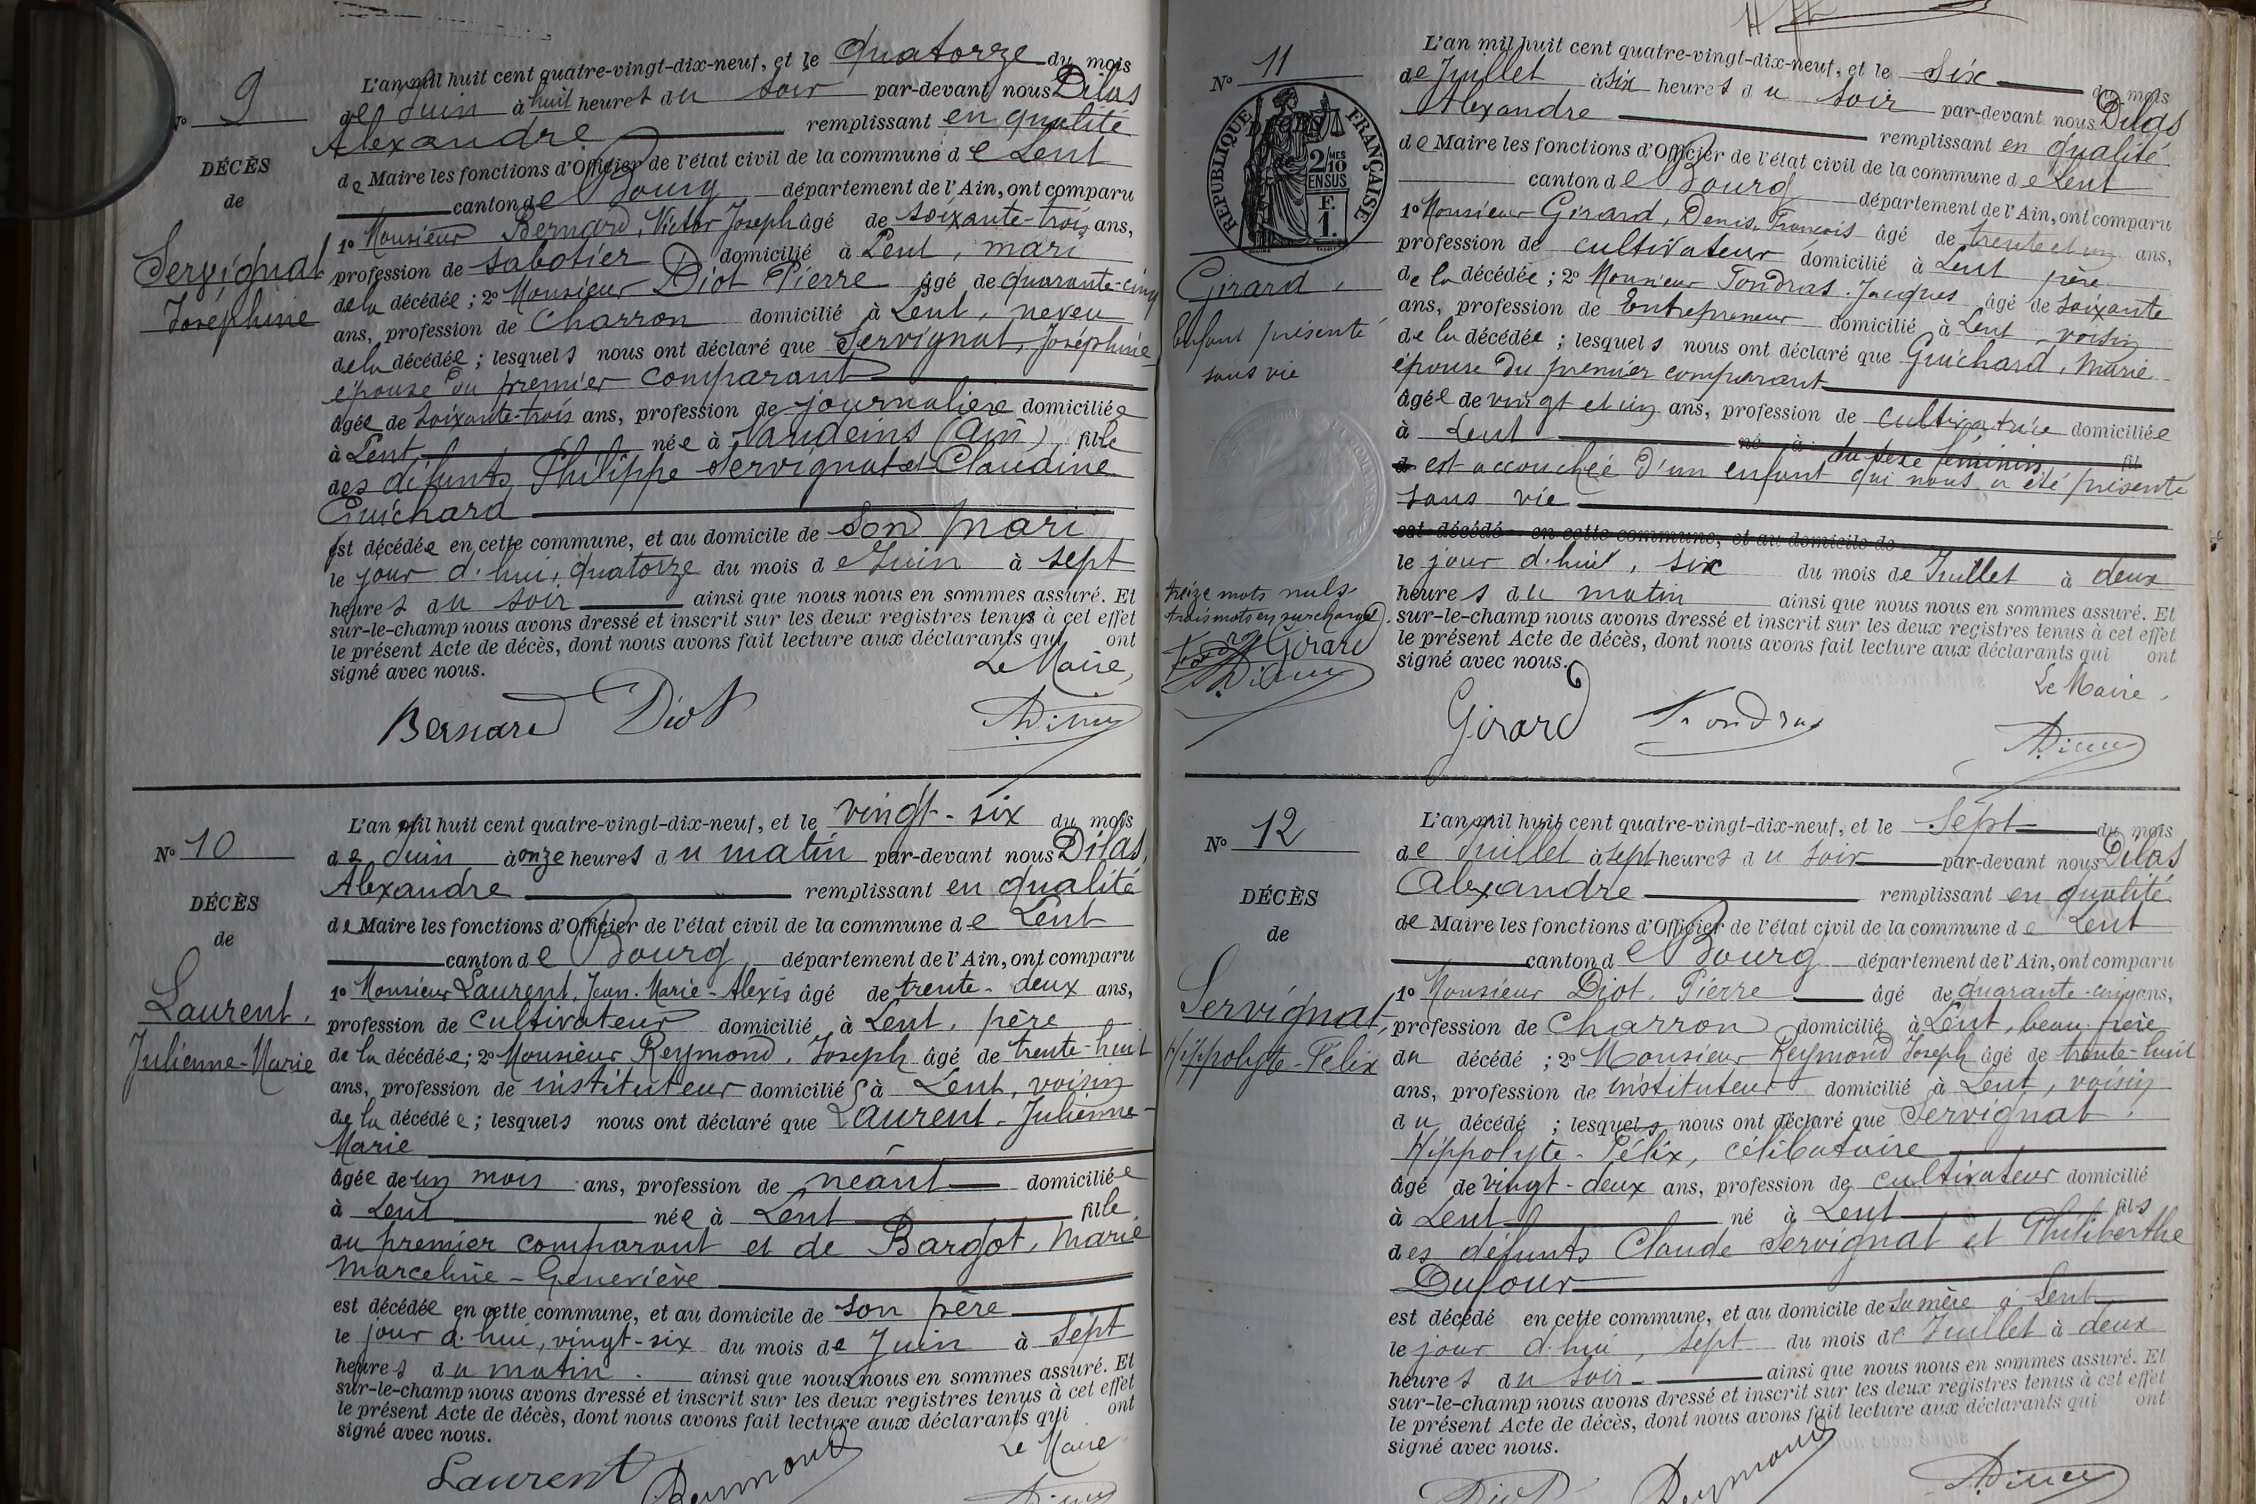 L'an mil huit cent quatre-vingt-dix-neuf, et le quatorze du mois
de Juin à huit heures du soir par-devant nous Dilas
Alexandre remplissant en qualité
de Maire les fonctions d'Officier de l'état civil de la commune de Lent
canton de Bourg département de l'Ain, ont comparu
1º Monsieur Bernard, Victor Joseph âgé de soixante-trois ans,
profession de sabotier domicilié à Lent, mari
de la décédée ; 2º Monsieur Diot Pierre âgé de quarante-cinq
ans, profession de charron domicilié à Lent, neveu
de la décédée ; lesquels nous ont déclaré que Servignat, Joséphine
épouse du premier comparant
âgée de soixante-trois ans, profession de journalière domiciliée
à Lent née à Vandeins (Ain), fille
des défunts Philippe Servignat et Claudine
Guichard
est décédée en cette commune, et au domicile de son mari
le jour d'hui, quatorze du mois de Juin à sept
heures du soir ainsi que nous nous en sommes assuré. Et
sur-le-champ nous avons dressé et inscrit sur les deux registres tenus à cet effet
le présent Acte de décès, dont nous avons fait lecture aux déclarants qui ont
signé avec nous.
Le Maire,
Bernard Diot
Nº 9
DÉCÈS
de
Servignat
Joséphine
Nº 10
DÉCÈS
de
Laurent,
Julienne-Marie
L'an mil huit cent quatre-vingt-dix-neuf, et le vingt-six du mois
de Juin à onze heures du matin par-devant nous Dilas,
Alexandre remplissant en qualité
de Maire les fonctions d'Officier de l'état civil de la commune de Lent
canton de Bourg département de l'Ain, ont comparu
1º Monsieur Laurent, Jean-Marie-Alexis âgé de trente-deux ans,
profession de cultivateur domicilié à Lent, père
de la décédée ; 2º Monsieur Reymond, Joseph âgé de trente-huit
ans, profession de instituteur domicilié à Lent, voisin
de la décédée ; lesquels nous ont déclaré que Laurent, Julienne-
Marie
âgée de un mois ans, profession de néant domiciliée
à Lent née à Lent fille
du premier comparant et de Bargot, Marie
Marceline-Geneviève
est décédée en cette commune, et au domicile de son père
le jour d'hui, vingt-six du mois de Juin à sept
heures du matin ainsi que nous nous en sommes assuré. Et
sur-le-champ nous avons dressé et inscrit sur les deux registres tenus à cet effet
le présent Acte de décès, dont nous avons fait lecture aux déclarants qui ont
signé avec nous.
Le Maire
Laurent Reymond
Nº 11
RÉPUBLIQUE FRANÇAISE
2/10 MES
EN SUS
F.
1.
Girard,
Enfant présenté
sans vie
treize mots nuls.
trois mots en surcharge.
Girard
L'an mil huit cent quatre-vingt-dix-neuf, et le six du mois
de Juillet à six heures du soir par-devant nous Dilas
Alexandre remplissant en qualité
de Maire les fonctions d'Officier de l'état civil de la commune de Lent
canton de Bourg département de l'Ain, ont comparu
1º Monsieur Girard, Denis-François âgé de trente et un ans,
profession de cultivateur domicilié à Lent père
de la décédée ; 2º Monsieur Tondras, Jacques âgé de soixante
ans, profession de Entrepreneur domicilié à Lent voisin
de la décédée ; lesquels nous ont déclaré que Guichard, Marie
épouse du premier comparant
âgée de vingt et un ans, profession de cultivatrice domiciliée
à Lent né à fil
du sexe féminin
est accouchée d'un enfant qui nous a été présenté
sans vie
est décédé en cette commune, et au domicile de
le jour d'hui, six du mois de Juillet à deux
heures du matin ainsi que nous nous en sommes assuré. Et
sur-le-champ nous avons dressé et inscrit sur les deux registres tenus à cet effet
le présent Acte de décès, dont nous avons fait lecture aux déclarants qui ont
signé avec nous.
Le Maire,
Girard Tondras
Nº 12
DÉCÈS
de
Servignat,
Hippolyte-Félix
L'an mil huit cent quatre-vingt-dix-neuf, et le Sept du mois
de Juillet à sept heures du soir par-devant nous Dilas
Alexandre remplissant en qualité
de Maire les fonctions d'Officier de l'état civil de la commune de Lent
canton de Bourg département de l'Ain, ont comparu
1º Monsieur Diot, Pierre âgé de quarante-cinq ans,
profession de Charron domicilié à Lent, beau-frère
du décédé ; 2º Monsieur Reymond Joseph âgé de trente-huit
ans, profession de instituteur domicilié à Lent, voisin
du décédé ; lesquels nous ont déclaré que Servignat,
Hippolyte-Félix, célibataire
âgé de vingt-deux ans, profession de cultivateur domicilié
à Lent né à Lent fils
des défunts Claude Servignat et Philiberthe
Dufour
est décédé en cette commune, et au domicile de sa mère à Lent
le jour d'hui, sept du mois de Juillet à deux
heures du soir ainsi que nous nous en sommes assuré. Et
sur-le-champ nous avons dressé et inscrit sur les deux registres tenus à cet effet
le présent Acte de décès, dont nous avons fait lecture aux déclarants qui ont
signé avec nous.
Diot Reymond